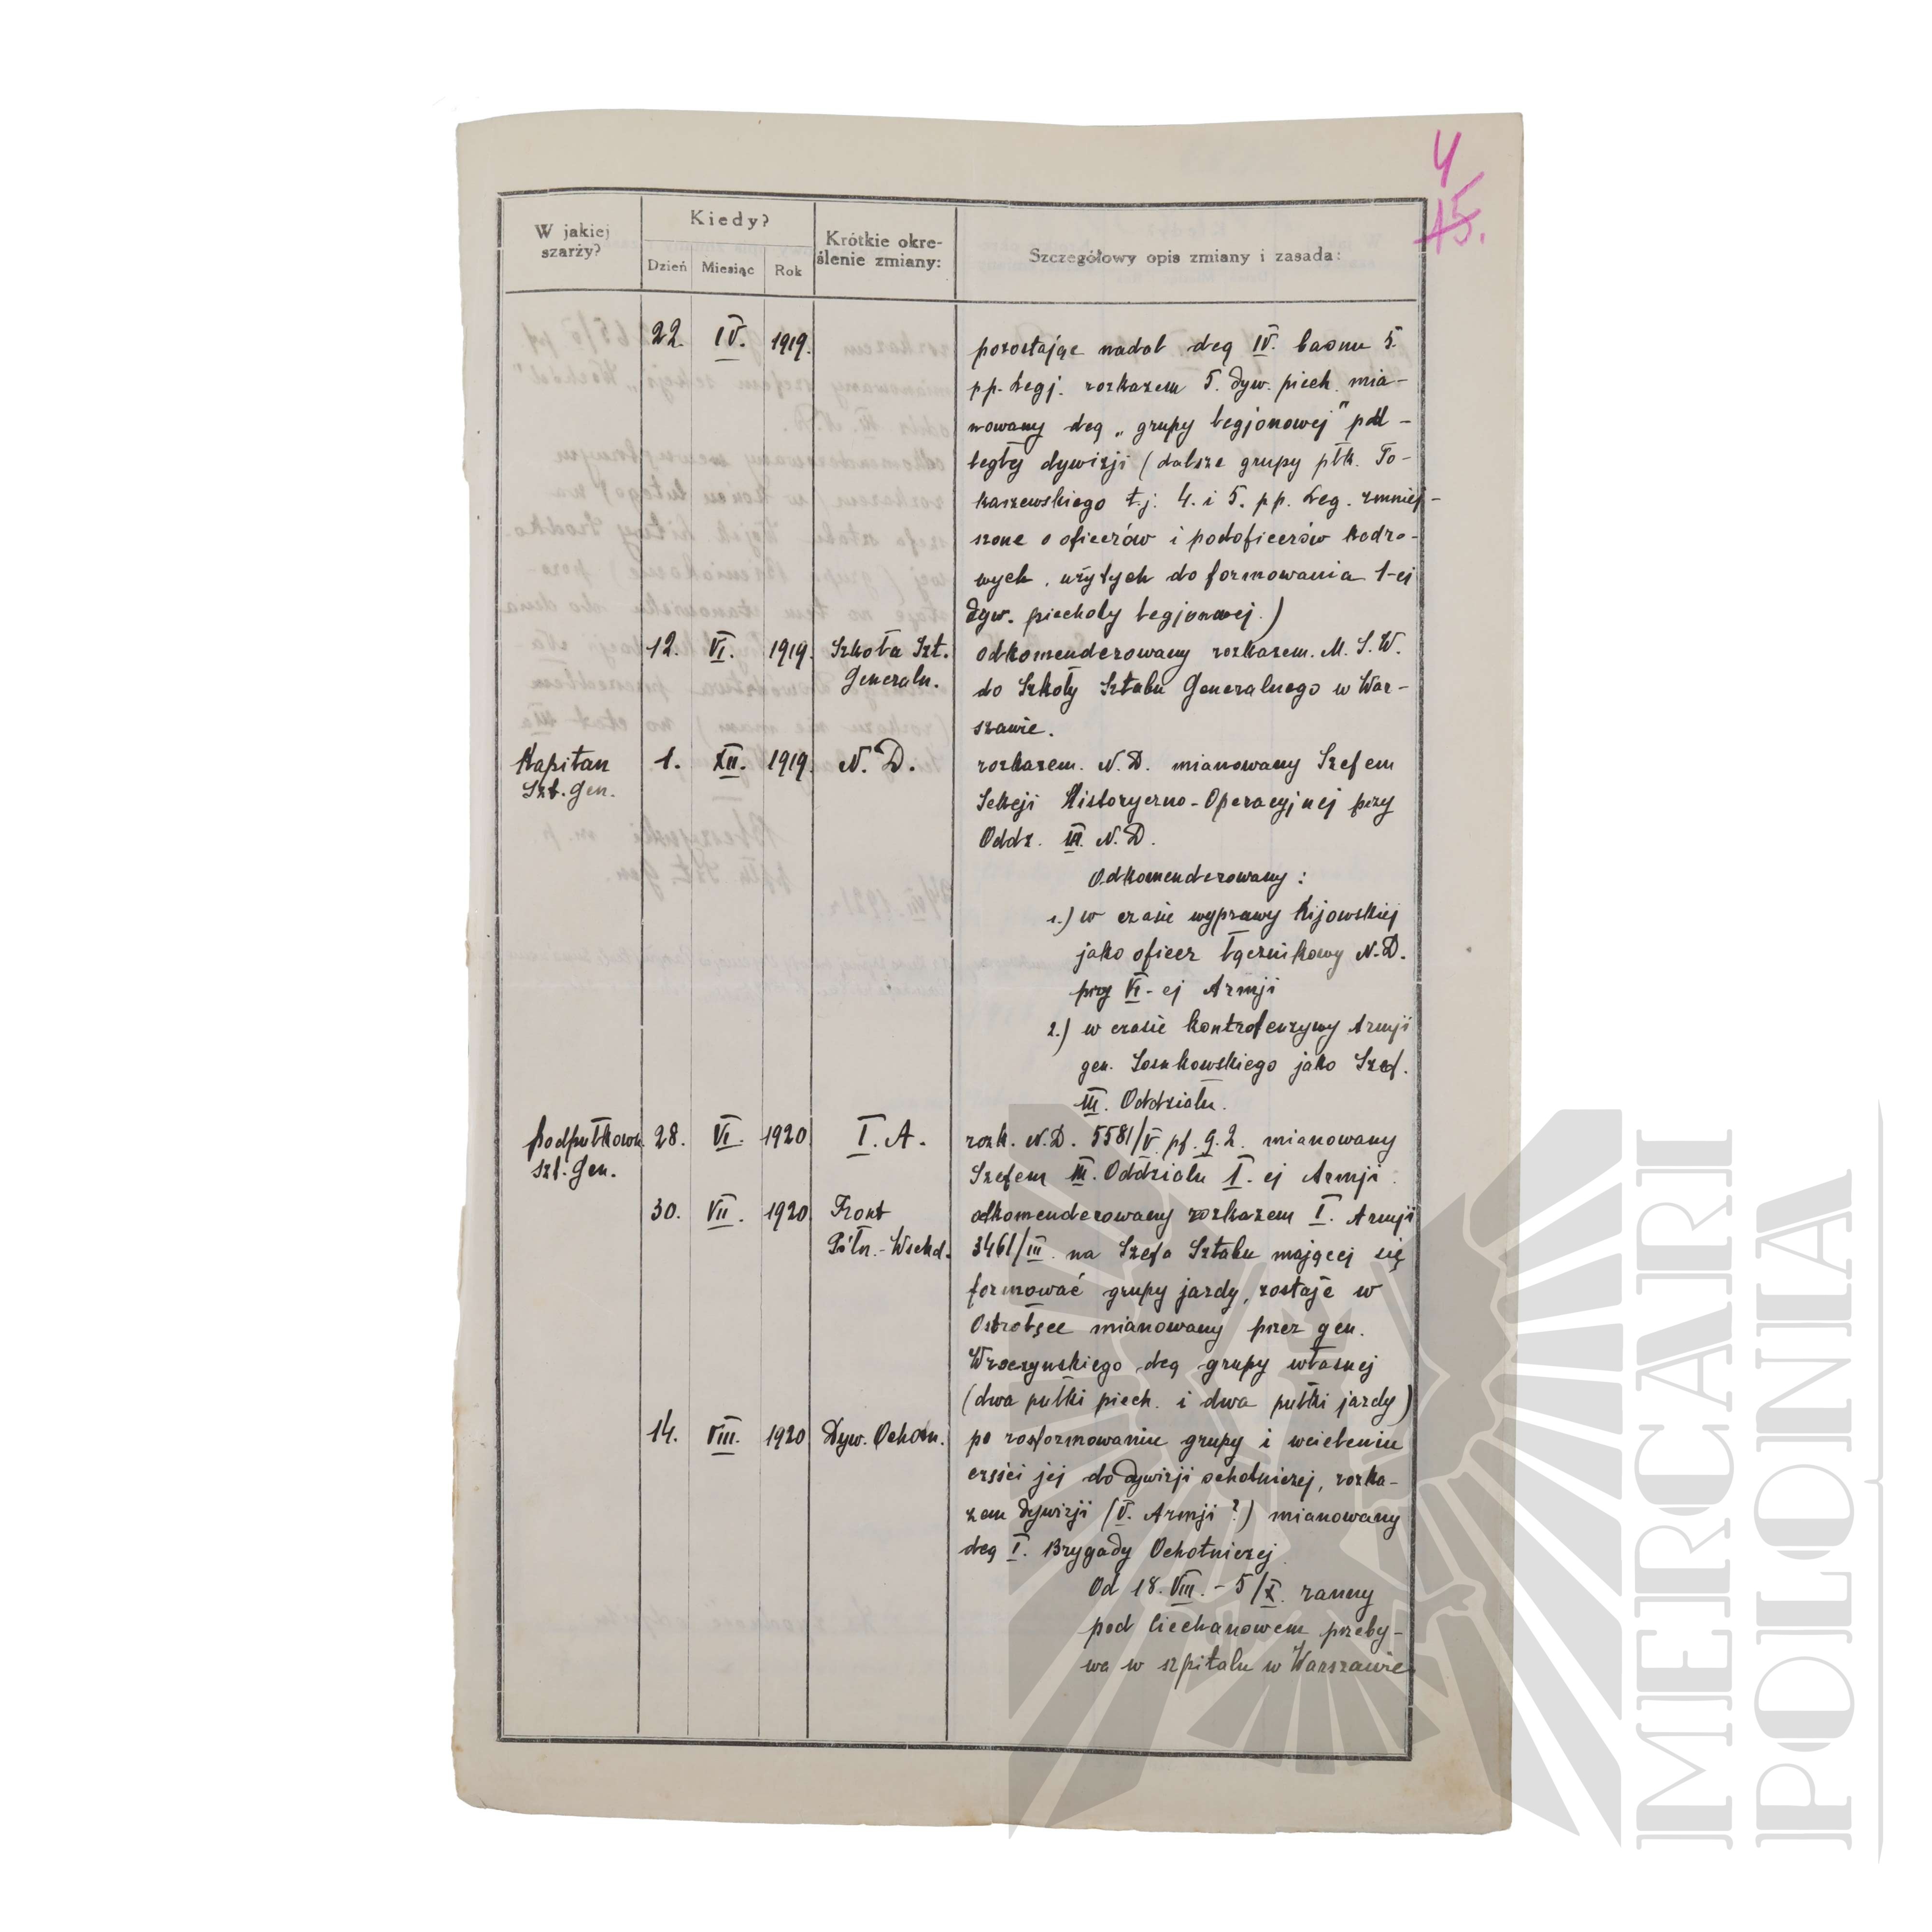 4
15.
W jakiej szarży?
Kiedy?
Dzień Miesiąc Rok
Krótkie okre-
ślenie zmiany:
Szczegółowy opis zmiany i zasada:
22. IV. 1919. pozostając nadal dcą IV. baonu 5.
pp. Legj. rozkazem 5. dyw. piech. mia-
nowany dcą „grupy legjonowej" pod-
ległej dywizji (dalsze grupy płk. To-
karzewskiego t.j. 4. i 5. pp. Leg. zmniej-
szone o oficerów i podoficerów kadro-
wych, użytych do formowania 1-ej
dyw. piechoty legjonowej.)
12. VI. 1919. Szkoła Szt. odkomenderowany rozkazem. M. S. W.
Generaln. do Szkoły Sztabu Generalnego w War-
szawie.
Kapitan 1. XII. 1919. N. D. rozkazem. N. D. mianowany Szefem
Szt. Gen. Sekcji Historyczno-Operacyjnej przy
Oddz. III. N. D.
Odkomenderowany:
1.) w czasie wyprawy Kijowskiej
jako oficer łącznikowy N. D.
przy VI-ej Armji
2.) w czasie kontrofenzywy Armji
gen. Sosnkowskiego jako Szef.
III. Oddziału.
Podpułkown. 28. VI. 1920 I. A. rozk. N. D. 5581/V pf. G. 2. mianowany
Szt. Gen. Szefem III. Oddziału I. ej Armji.
30. VII. 1920 Front odkomenderowany rozkazem I. Armji
Półn.-Wschd. 3461/III. na Szefa Sztabu mającej się
formować grupy jazdy, zostaje w
Ostrołęce mianowany przez gen.
Wroczyńskiego dcą grupy własnej
(dwa pułki piech. i dwa pułki jazdy)
14. VIII. 1920 Dyw. Ochotn. po rosformowaniu grupy i wcieleniu
części jej do dywizji ochotniczej, rozka-
zem dywizji (V. Armji?) mianowany
dcą I. Brygady Ochotniczej.
Od 18. VIII. - 5/X. ranny
pod Ciechanowem przeby-
wa w szpitalu w Warszawie
MERCARI
POLONIA